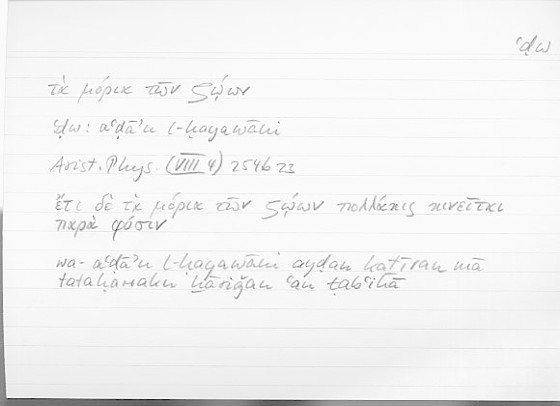 ʿḍw
τὰ μόρια τῶν ζῴων
ʿḍw: aʿḍāʾu l-ḥayawāni
Arist. Phys. (VIII 4) 254b23
ἔτι δὲ τὰ μόρια τῶν ζῴων πολλάκις κινεῖται
παρὰ φύσιν
wa-aʿḍāʾu l-ḥayawāni ayḍan kaṯīran mā
tataḥarraku ḫāriǧan ʿan ṭabʿihā